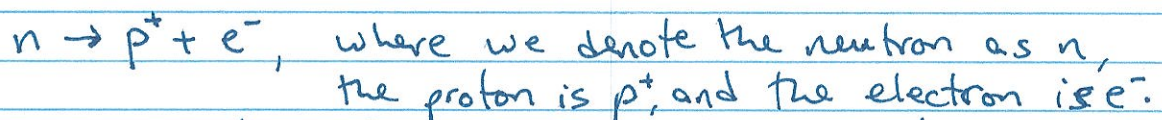 n → p⁺ + e⁻, where we denote the neutron as n,
the proton is p⁺, and the electron is e⁻.